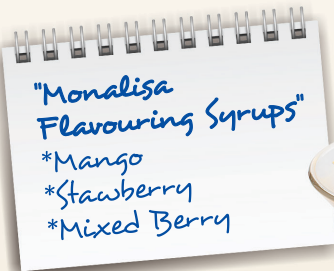 "Monalisa
Flavouring Syrups"
*Mango
*Stawberry
*Mixed Berry